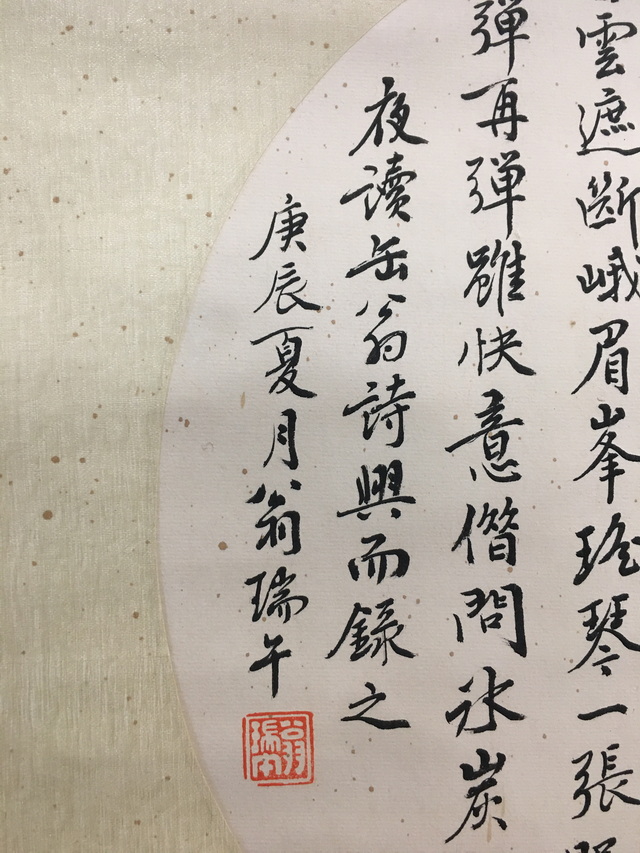 雲遮斷峨眉峯瑤琴一張
彈再彈雖快意僭問冰炭
夜讀岳翁詩興而錄之
庚辰夏月翁瑞午
翁瑞午